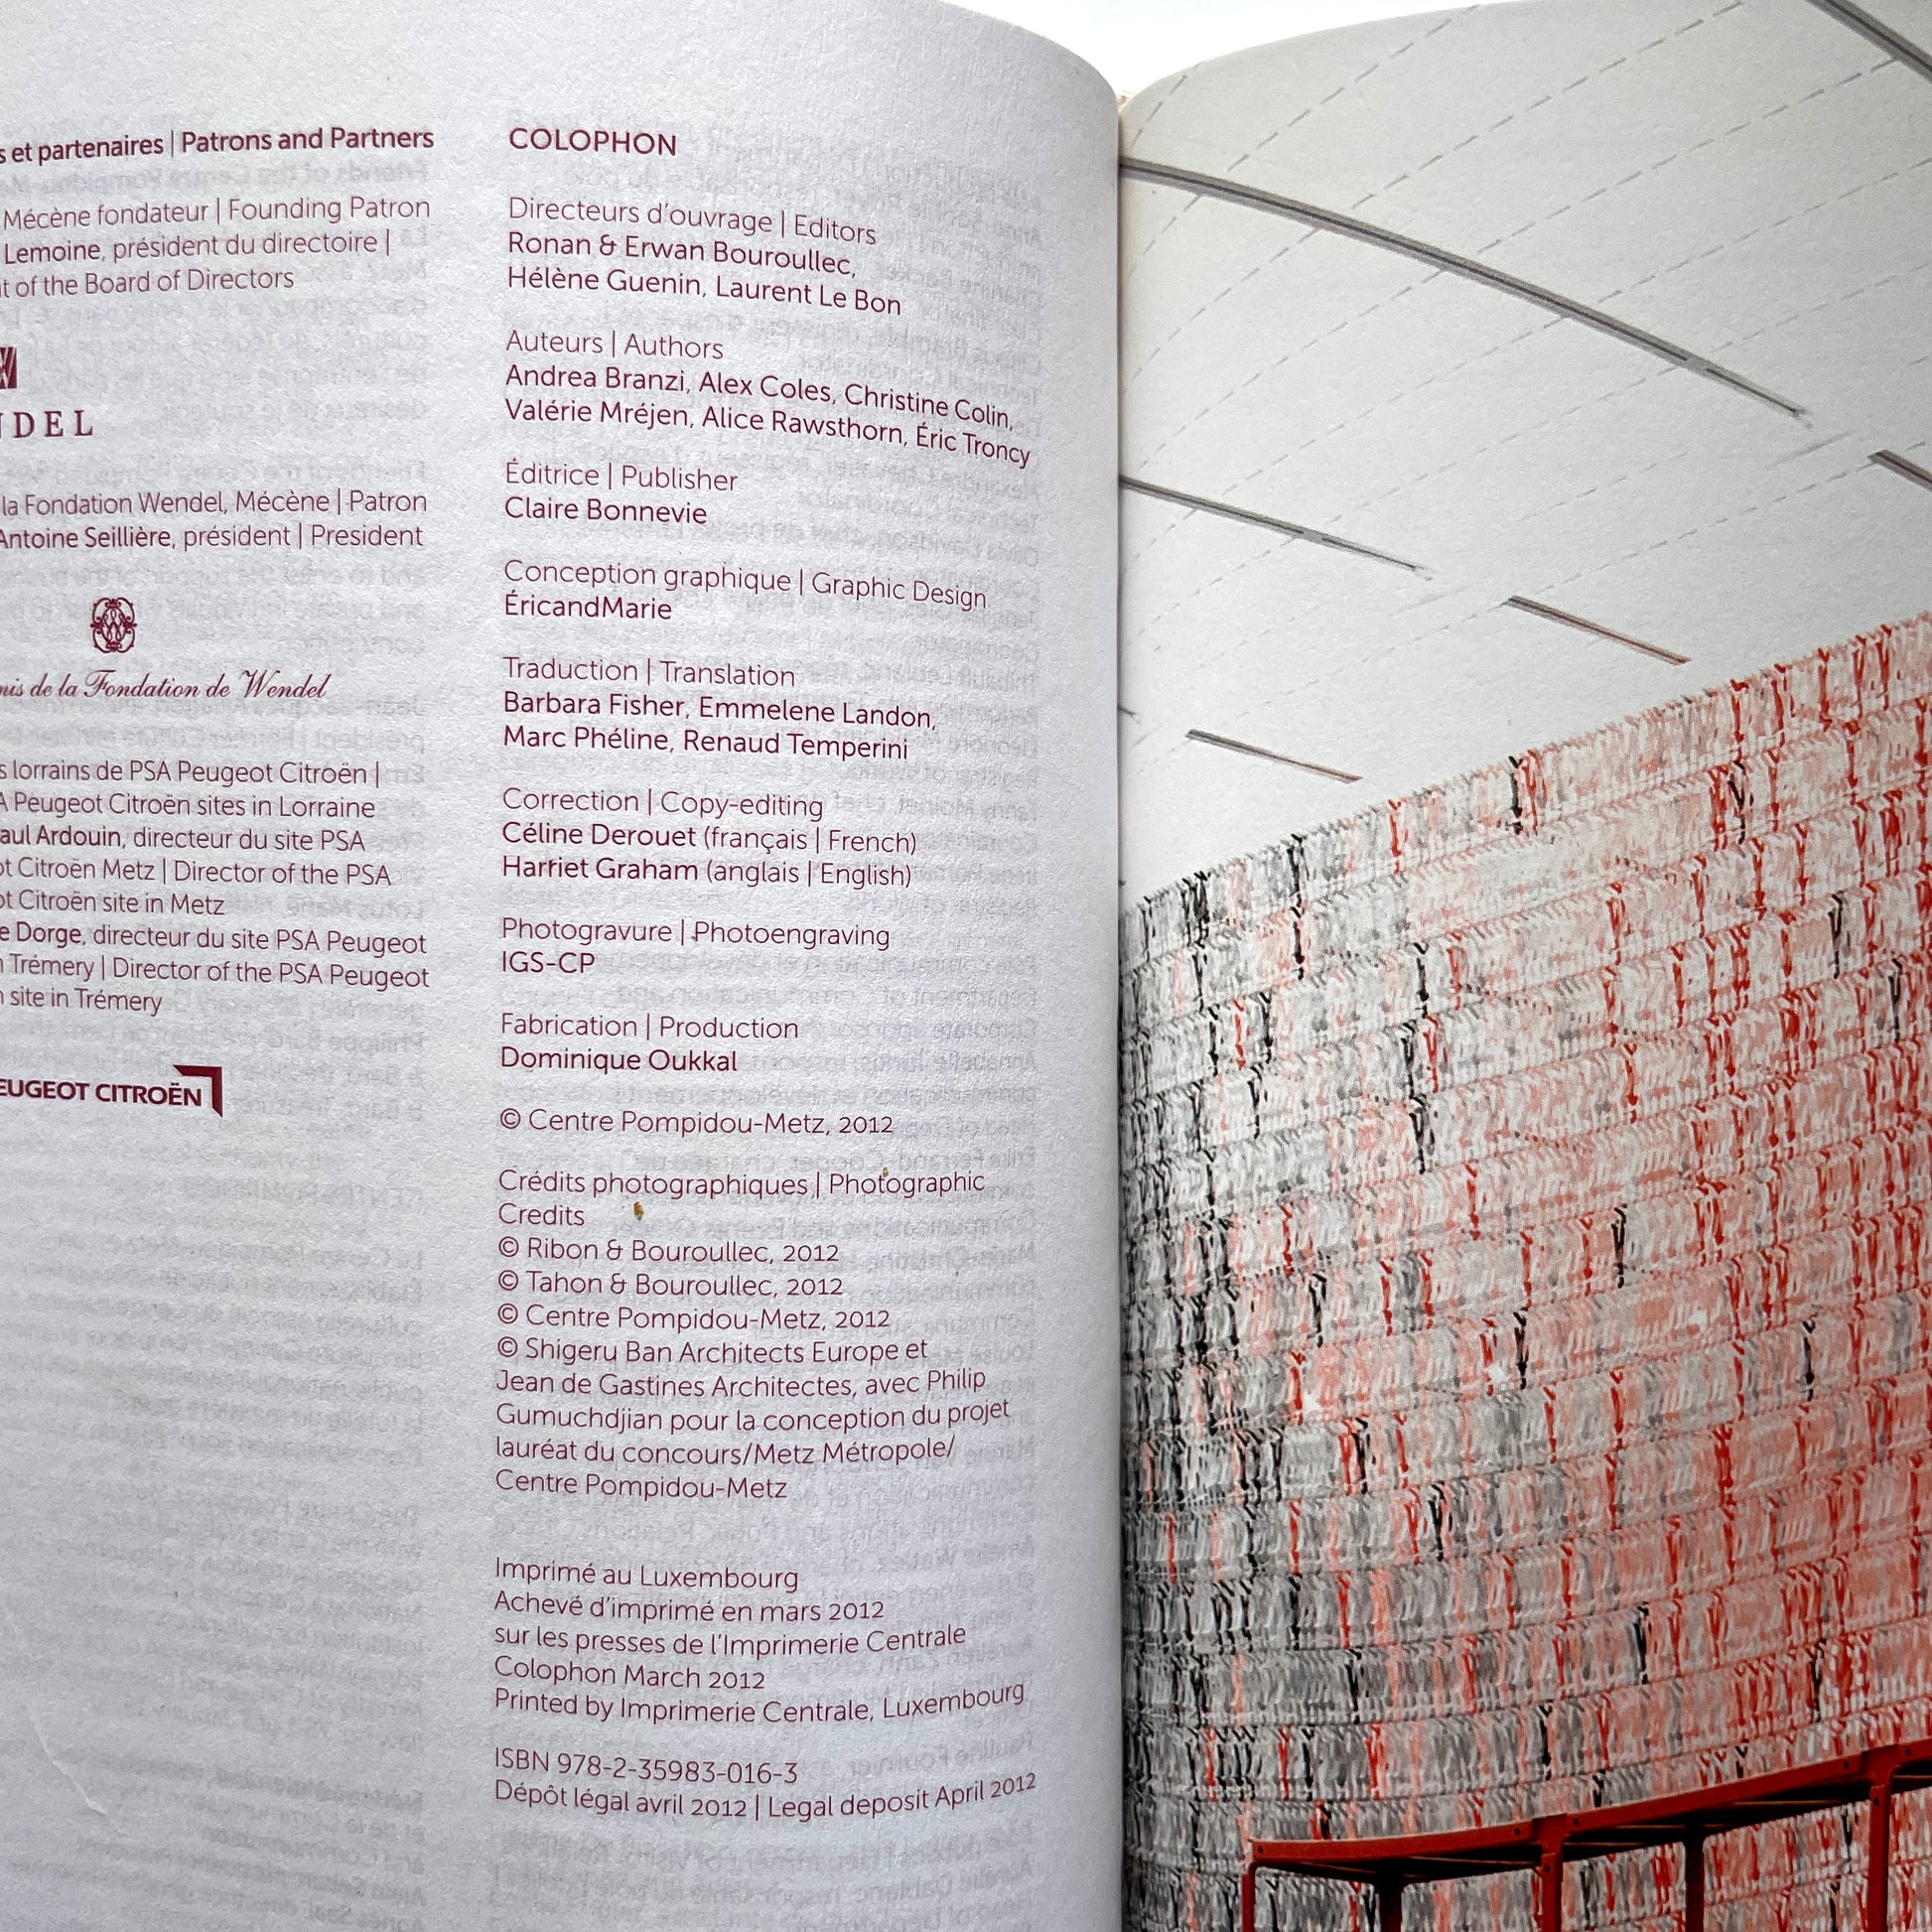 et partenaires | Patrons and Partners
Mécène fondateur | Founding Patron
Lemoine, président du directoire |
of the Board of Directors
la Fondation Wendel, Mécène | Patron
Antoine Seillière, président | President
de la Fondation de Wendel
lorrains de PSA Peugeot Citroën |
Peugeot Citroën sites in Lorraine
Ardouin, directeur du site PSA
Citroën Metz | Director of the PSA
Citroën site in Metz
Dorge, directeur du site PSA Peugeot
Trémery | Director of the PSA Peugeot
site in Trémery
PEUGEOT CITROËN
COLOPHON
Directeurs d'ouvrage | Editors
Ronan & Erwan Bouroullec,
Hélène Guenin, Laurent Le Bon
Auteurs | Authors
Andrea Branzi, Alex Coles, Christine Colin,
Valérie Mréjen, Alice Rawsthorn, Éric Troncy
Éditrice | Publisher
Claire Bonnevie
Conception graphique | Graphic Design
ÉricandMarie
Traduction | Translation
Barbara Fisher, Emmelene Landon,
Marc Phéline, Renaud Temperini
Correction | Copy-editing
Céline Derouet (français | French)
Harriet Graham (anglais | English)
Photogravure | Photoengraving
IGS-CP
Fabrication | Production
Dominique Oukkal
© Centre Pompidou-Metz, 2012
Crédits photographiques | Photographic
Credits
© Ribon & Bouroullec, 2012
© Tahon & Bouroullec, 2012
© Centre Pompidou-Metz, 2012
© Shigeru Ban Architects Europe et
Jean de Gastines Architectes, avec Philip
Gumuchdjian pour la conception du projet
lauréat du concours/Metz Métropole/
Centre Pompidou-Metz
Imprimé au Luxembourg
Achevé d'imprimé en mars 2012
sur les presses de l'Imprimerie Centrale
Colophon March 2012
Printed by Imprimerie Centrale, Luxembourg
ISBN 978-2-35983-016-3
Dépôt légal avril 2012 | Legal deposit April 2012